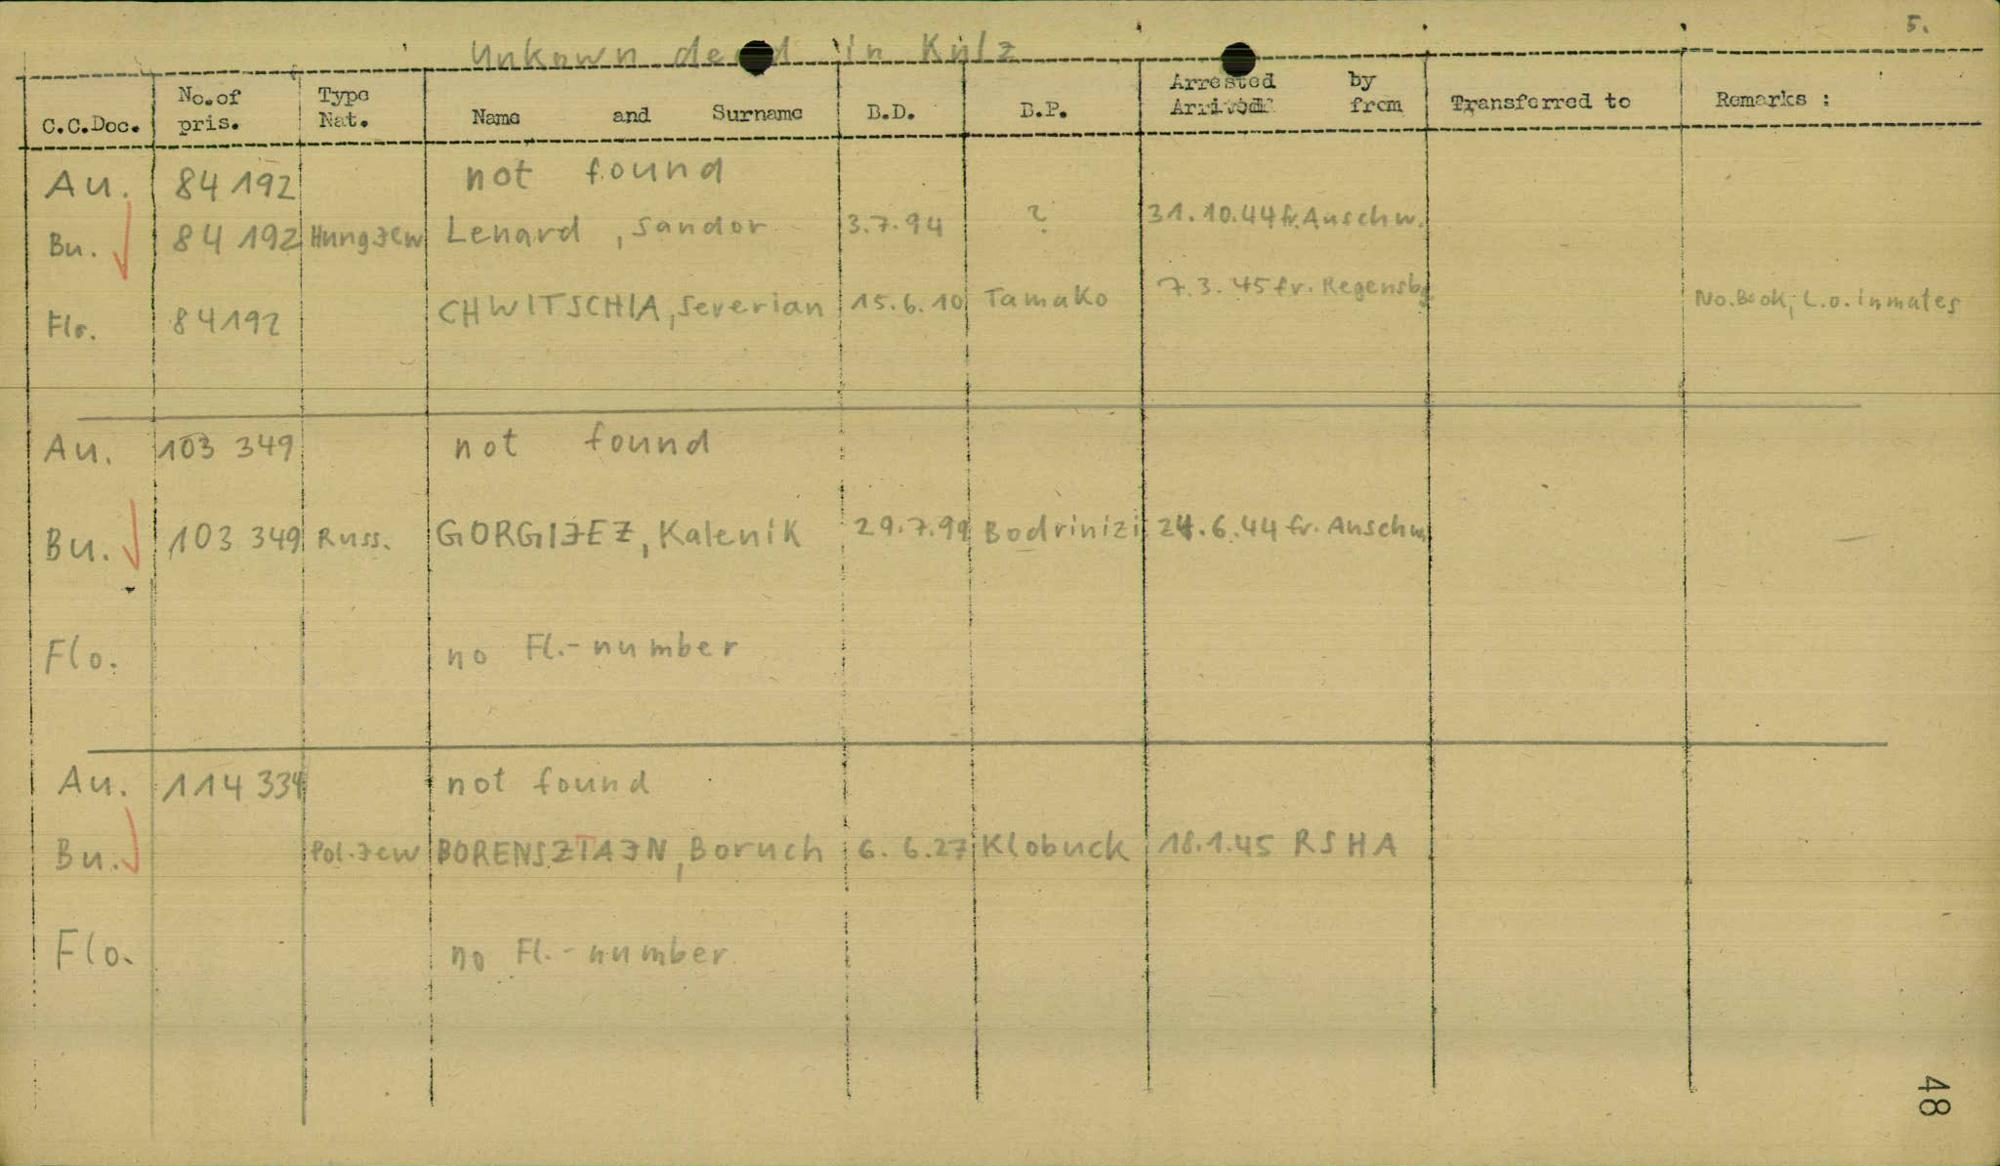 5.
Unkown dead in Külz
C.C.Doc. No.of pris. Type Nat. Name and Surname B.D. B.P. Arrested by Arrived from Transferred to Remarks :
Au. 84 192 not found
Bu. 84 192 Hung Jew Lenard , Sandor 3.7.94 ? 31.10.44 fr. Auschw.
Flo. 84192 CHWITSCHIA, Severian 15.6.10 Tamako 7.3.45 fr. Regensbg No. Book; L.o. inmates
Au. 103 349 not found
Bu. 103 349 Russ. GORGIJEZ, Kalenik 29.7.99 Bodrinizi 24.6.44 fr. Auschw
Flo. no Fl.-number
Au. 114 334 not found
Bu. Pol. Jew BORENSZTAJN, Boruch 6.6.27 Klobuck 18.1.45 RSHA
Flo. no Fl.-number
48